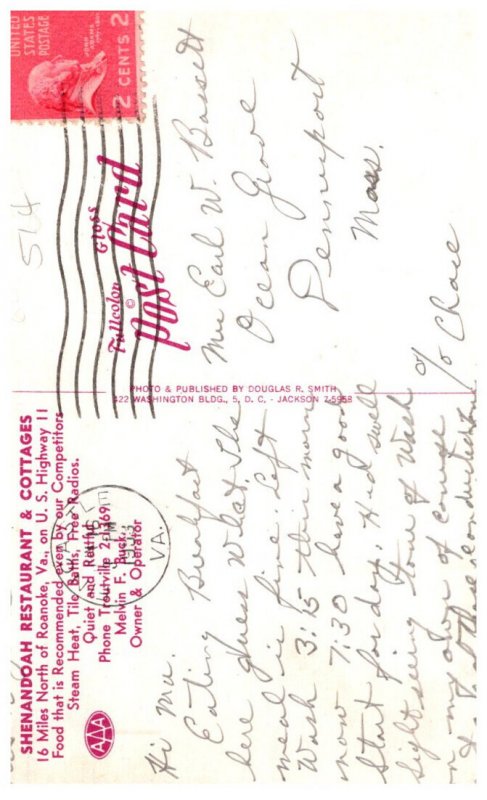 SHENANDOAH RESTAURANT & COTTAGES
16 Miles North of Roanoke, Va., on U. S. Highway 11
Food that is Recommended even by our Competitors
Steam Heat, Tile Baths, Free Radios.
Quiet and Restful
Phone Troutville 2-1769
Melvin F. Buck,
Owner & Operator
AAA
VA.
Hi Mu.
Eating Breakfast
here guess What. The
meal is fine. Left
Wash 3:15 this morn
now 7:30 have a good
start for day. Had swell
sightseeing tour of Wash
on my own of course
PHOTO & PUBLISHED BY DOUGLAS R. SMITH
422 WASHINGTON BLDG., 5, D. C. - JACKSON 7-5958
Fullcolor Gloss
©
Post Card
UNITED
STATES
POSTAGE
JOHN
ADAMS
2 CENTS 2
514
Mrs Earl W. Bassett
Ocean Grove
Dennisport
Mass.
c/o Chase